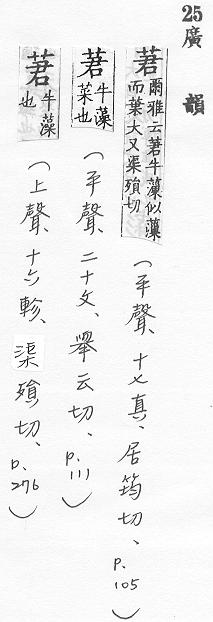 25 廣韻
莙 爾雅云莙牛藻似藻
而葉大又渠殞切
(平聲、十七真、居筠切、p.105)
莙 牛藻
菜也
(平聲、二十文、舉云切、p.111)
莙 牛藻
也
(上聲、十六軫、渠殞切、p.276)